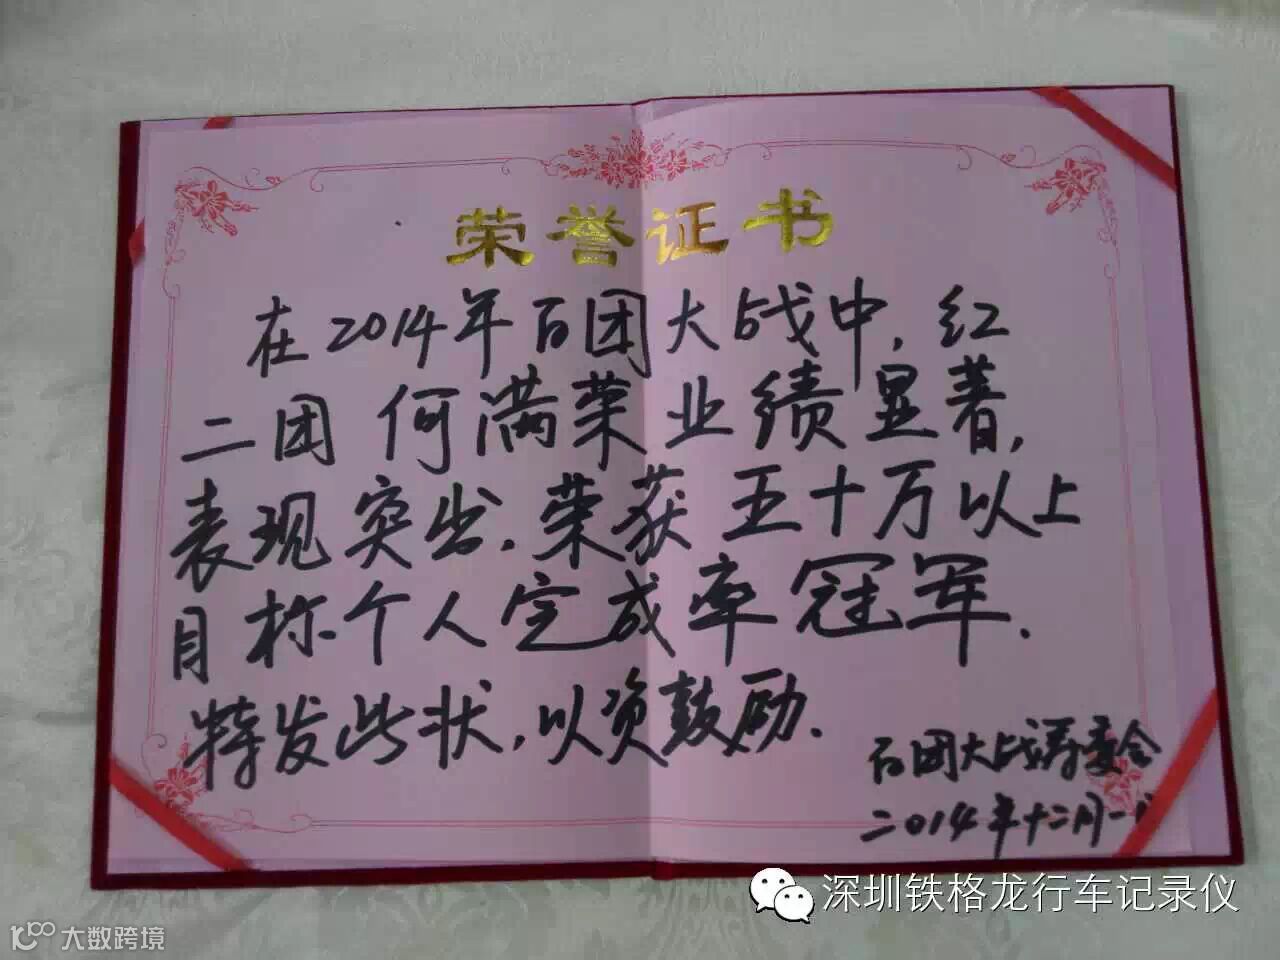 荣誉证书
在2014年百团大战中,红
二团 何满荣业绩显著,
表现突出.荣获五十万以上
目标个人完成率冠军.
特发此状,以资鼓励.
百团大战 委会
二014年十二月一
深圳铁格龙行车记录仪
大数跨境